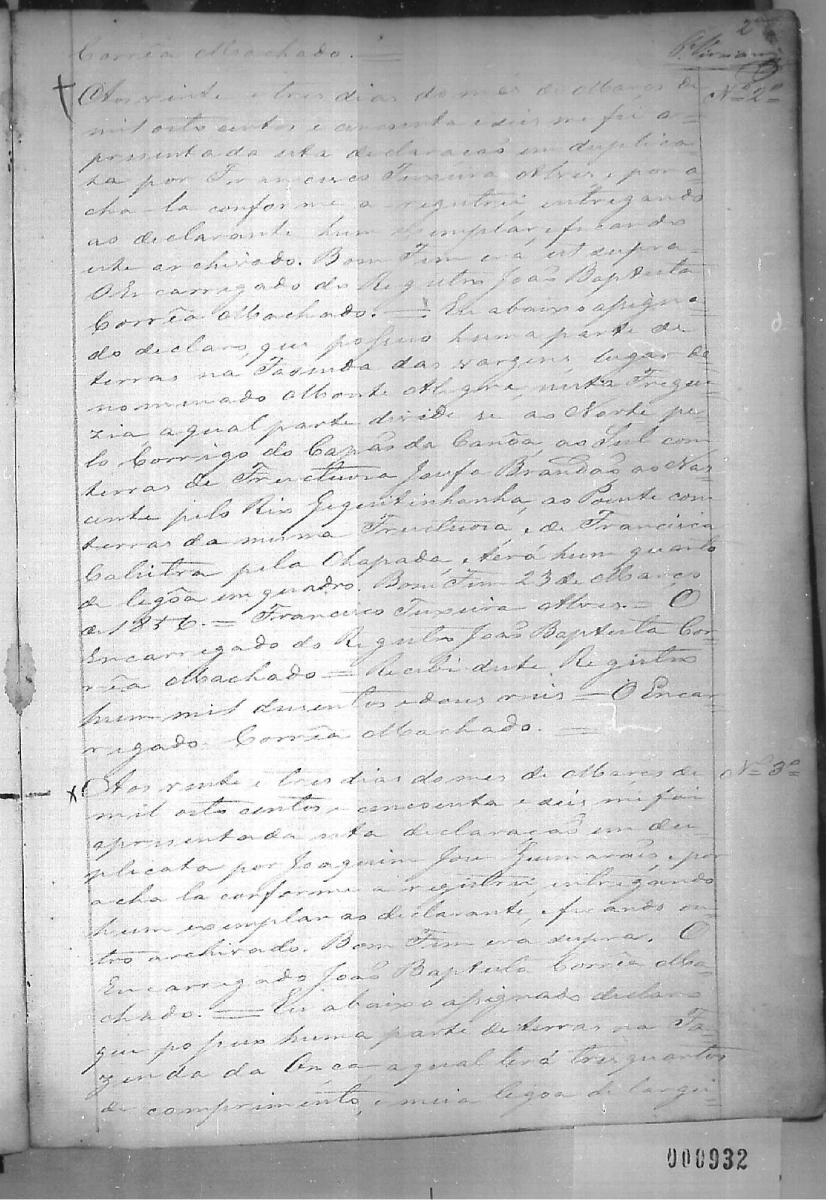 2
Corrêa Machado. =
Nº 2º
Aos vinte e tres dias do mes de Março de
mil oito centos e cincoenta e seis me foi a-
presentada esta declaração em duplica-
ta por Francisco Teixeira Alves, e por a-
cha-la conforme a registrei, entregando
ao declarante hum exemplar, e ficando
este archivado. Bom Fim era ut supra -
O Encarregado do Registro João Baptista
Corrêa Machado. = Eu abaixo assigna-
do declaro, que possuo huma parte de
terras na Fazenda das vargens, lugar de-
nominado Monte Alegre, nesta Fregue-
zia, a qual parte divide se ao Norte pe-
lo Corrego do Capão da Canôa, ao Sul com
terras de Fructuosa Josefa Brandão ao Nas-
cente pelo Rio Gegentinhonha, ao Poente com
terras da mesma Fructuosa, e de Francisca
pela Chapada, e terá hum quarto
de legôa em quadro. Bom Fim 23 de Março
de 1856. = Francisco Teixeira Alves. = O
Encarregado do Registro João Baptista Cor-
rêa Machado = Recebi deste Registro
hum mil dusentos e dous reis = O Encar-
regado Corrêa Machado. =
Nº 3º
Aos vinte e tres dias do mes de Março de
mil oito centos e cincoenta e seis me foi
apresentada esta declaração em du-
plicata por Joaquim José Guimarães, e por
acha la conforme a registrei, entregando
hum exemplar ao declarante, e ficando ou-
tro archivado. Bom Fim era supra. O
Encarregado João Baptista Corrêa Ma-
chado. = Eu abaixo assignado declaro
que possuo huma parte de terras na Fa-
zenda da Onca a qual terá tres quartos
de comprimento, e meia legoa de largu-
000932